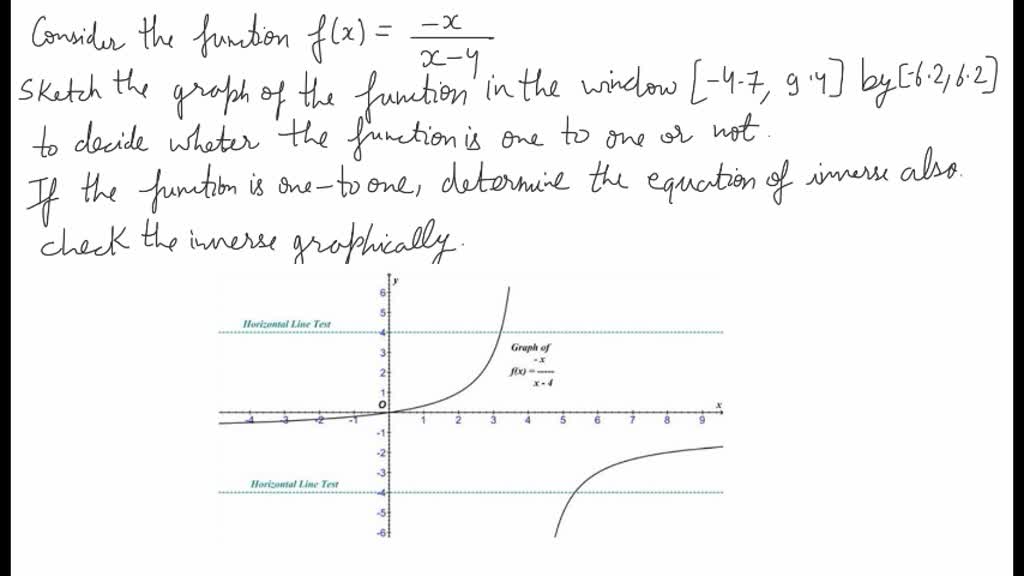 Consider the function f(x) = -x / x-4
Sketch the graph of the function in the window [-4.7, 9.4] by [-6.2, 6.2]
to decide wheter the function is one to one or not.
If the function is one-to one, determine the equation of inverse also
check the inverse graphically.
y
6
5
Horizontal Line Test
4
3
Graph of
f(x) = -x / x - 4
2
1
O
x
-4 -3 -2 -1 1 2 3 4 5 6 7 8 9
-1
-2
-3
Horizontal Line Test
-4
-5
-6